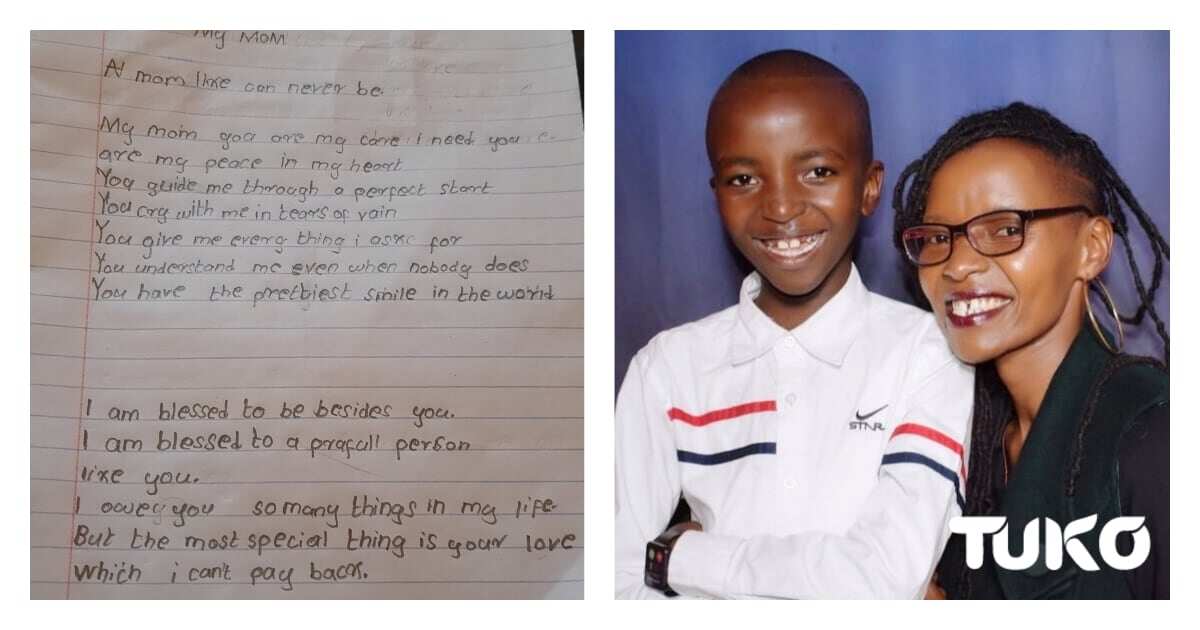 My MOM
A mom like can never be.
My mom you are my core i need you
are my peace in my heart
You guide me through a perfect start
You cry with me in tears of vain
You give me every thing i ask for
You understand me even when nobody does
You have the prettiest smile in the world
I am blessed to be besides you.
I am blessed to a prafull person
like you.
I owey you so many things in my life
But the most special thing is your love
which i can't pay back.
STAR
TUKO